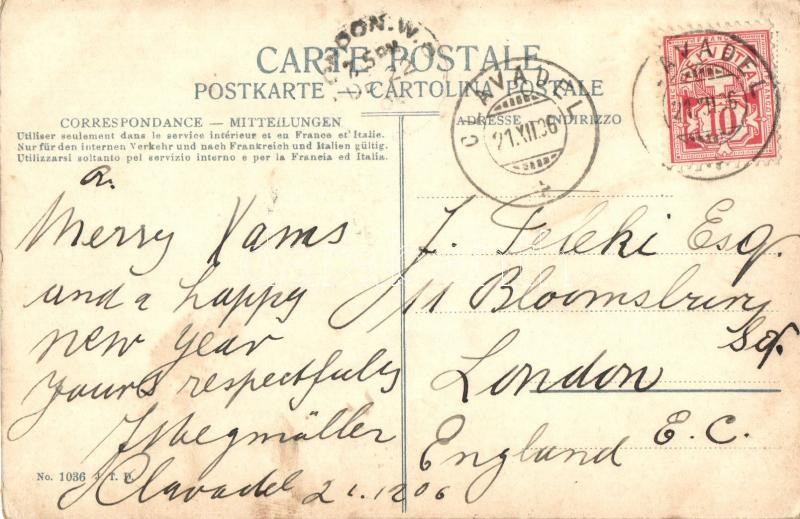 CARTE POSTALE
POSTKARTE — CARTOLINA POSTALE
CORRESPONDANCE — MITTEILUNGEN
ADRESSE — INDIRIZZO
Utiliser seulement dans le service intérieur et en France et Italie.
Nur für den internen Verkehr und nach Frankreich und Italien gültig.
Utilizzarsi soltanto pel servizio interno e per la Francia ed Italia.
a.
Merry Xams
and a happy
new year
yours respectfully
Clavadel 21.12 06
No. 1036
J. Teleki Esq.
11 Bloomsbury
Sq.
London
E.C.
England
CLAVADEL
21.XII.06
LONDON. W.C.
CLAVADEL
21.XII.06
10